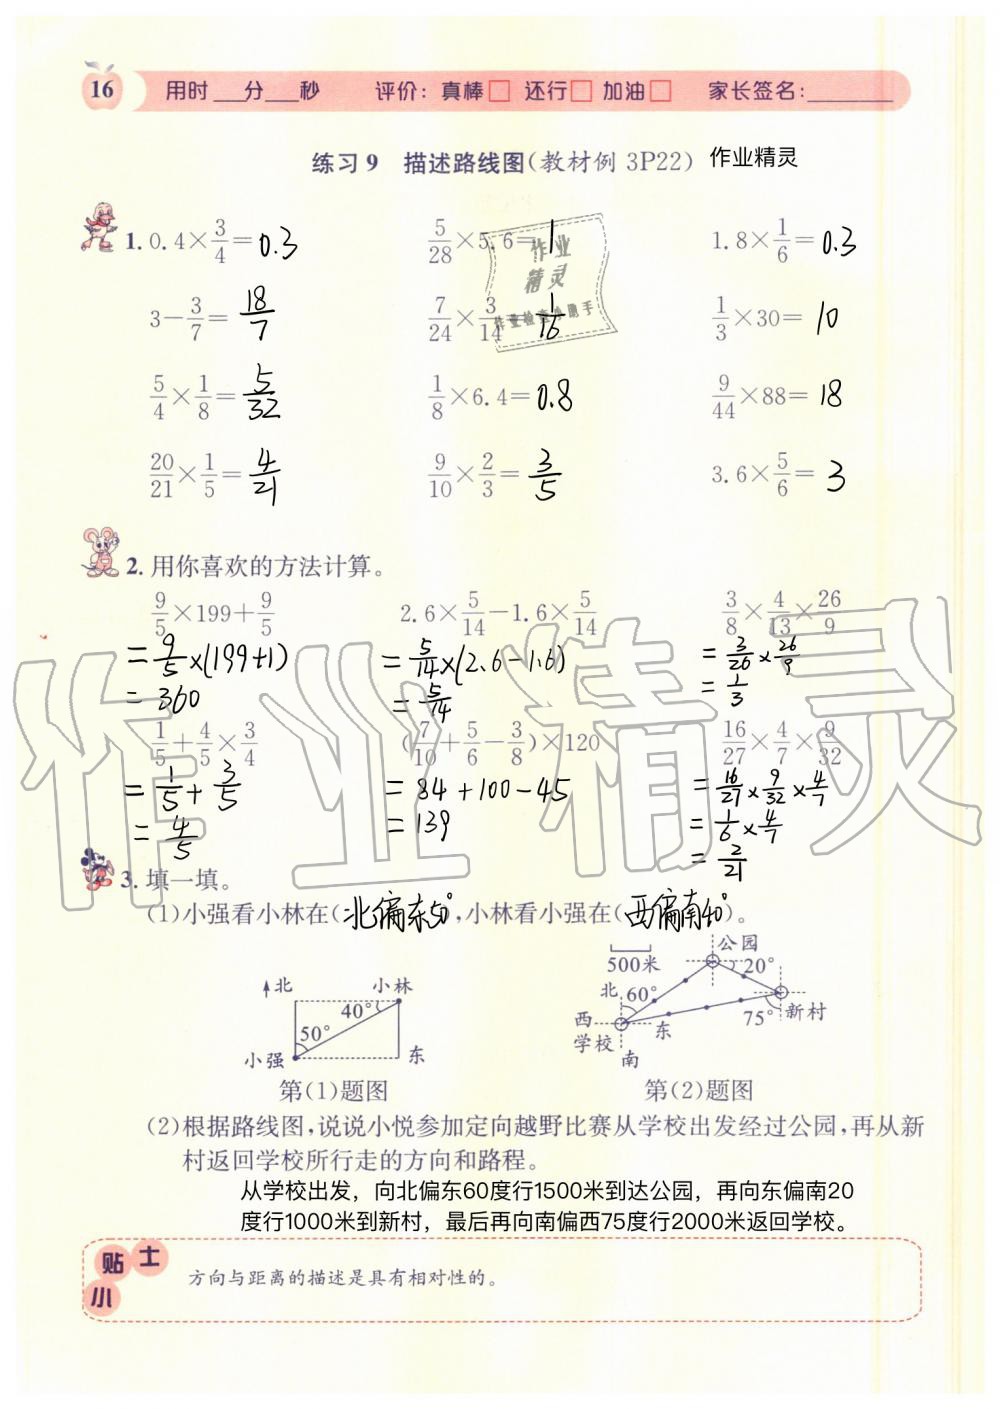 16 用时___分___秒 评价：真棒□ 还行□ 加油□ 家长签名：________
练习9 描述路线图（教材例 3P22） 作业精灵
1. 0.4×3/4=0.3 5/28×5.6=1 1.8×1/6=0.3
3－3/7=18/7 7/24×3/14=1/16 1/3×30=10
5/4×1/8=5/32 1/8×6.4=0.8 9/44×88=18
20/21×1/5=4/21 9/10×2/3=3/5 3.6×5/6=3
作业
精灵
作业检查小助手
2. 用你喜欢的方法计算。
9/5×199＋9/5 2.6×5/14－1.6×5/14 3/8×4/13×26/9
=9/5×(199+1) =5/14×(2.6-1.6) =3/26×26/9
=360 =5/14 =1/3
1/5＋4/5×3/4 (7/10＋5/6－3/8)×120 16/27×4/7×9/32
=1/5+3/5 =84+100-45 =16/27×9/32×4/7
=4/5 =139 =1/6×4/7
=2/21
3. 填一填。
(1)小强看小林在(北偏东50°)，小林看小强在(西偏南40°)。
北 小林 40° 50° 小强 东
第(1)题图
500米 公园 20° 北 60° 新村 75° 西 东 学校 南
第(2)题图
(2)根据路线图，说说小悦参加定向越野比赛从学校出发经过公园，再从新
村返回学校所行走的方向和路程。
从学校出发，向北偏东60度行1500米到达公园，再向东偏南20
度行1000米到新村，最后再向南偏西75度行2000米返回学校。
小贴士
方向与距离的描述是具有相对性的。
作业精灵